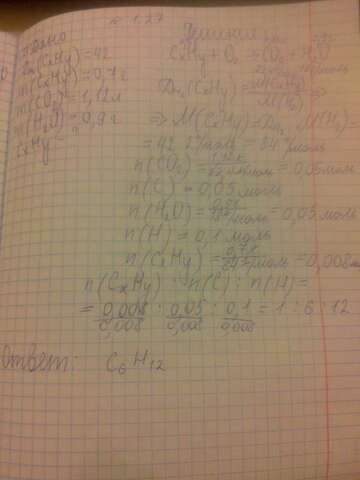 № 1.27
Дано
D H₂(CxHy) = 42
m(CxHy) = 0,7 г
V(CO₂) = 1,12 л
m(H₂O) = 0,9 г
CxHy - ?
Решение
CxHy + O₂ = CO₂ + H₂O
D H₂(CxHy) = M(CxHy) / M(H₂) ⇒
⇒ M(CxHy) = D H₂ · M(H₂) =
= 42 · 2 г/моль = 84 г/моль
n(CO₂) = 1,12 л / 22,4 л/моль = 0,05 моль
n(C) = 0,05 моль
n(H₂O) = 0,9 г / 18 г/моль = 0,05 моль
n(H) = 0,1 моль
n(CxHy) = 0,7 г / 84 г/моль = 0,008 моль
n(CxHy) : n(C) : n(H) =
= 0,008/0,008 : 0,05/0,008 : 0,1/0,008 = 1 : 6 : 12
Ответ: C₆H₁₂